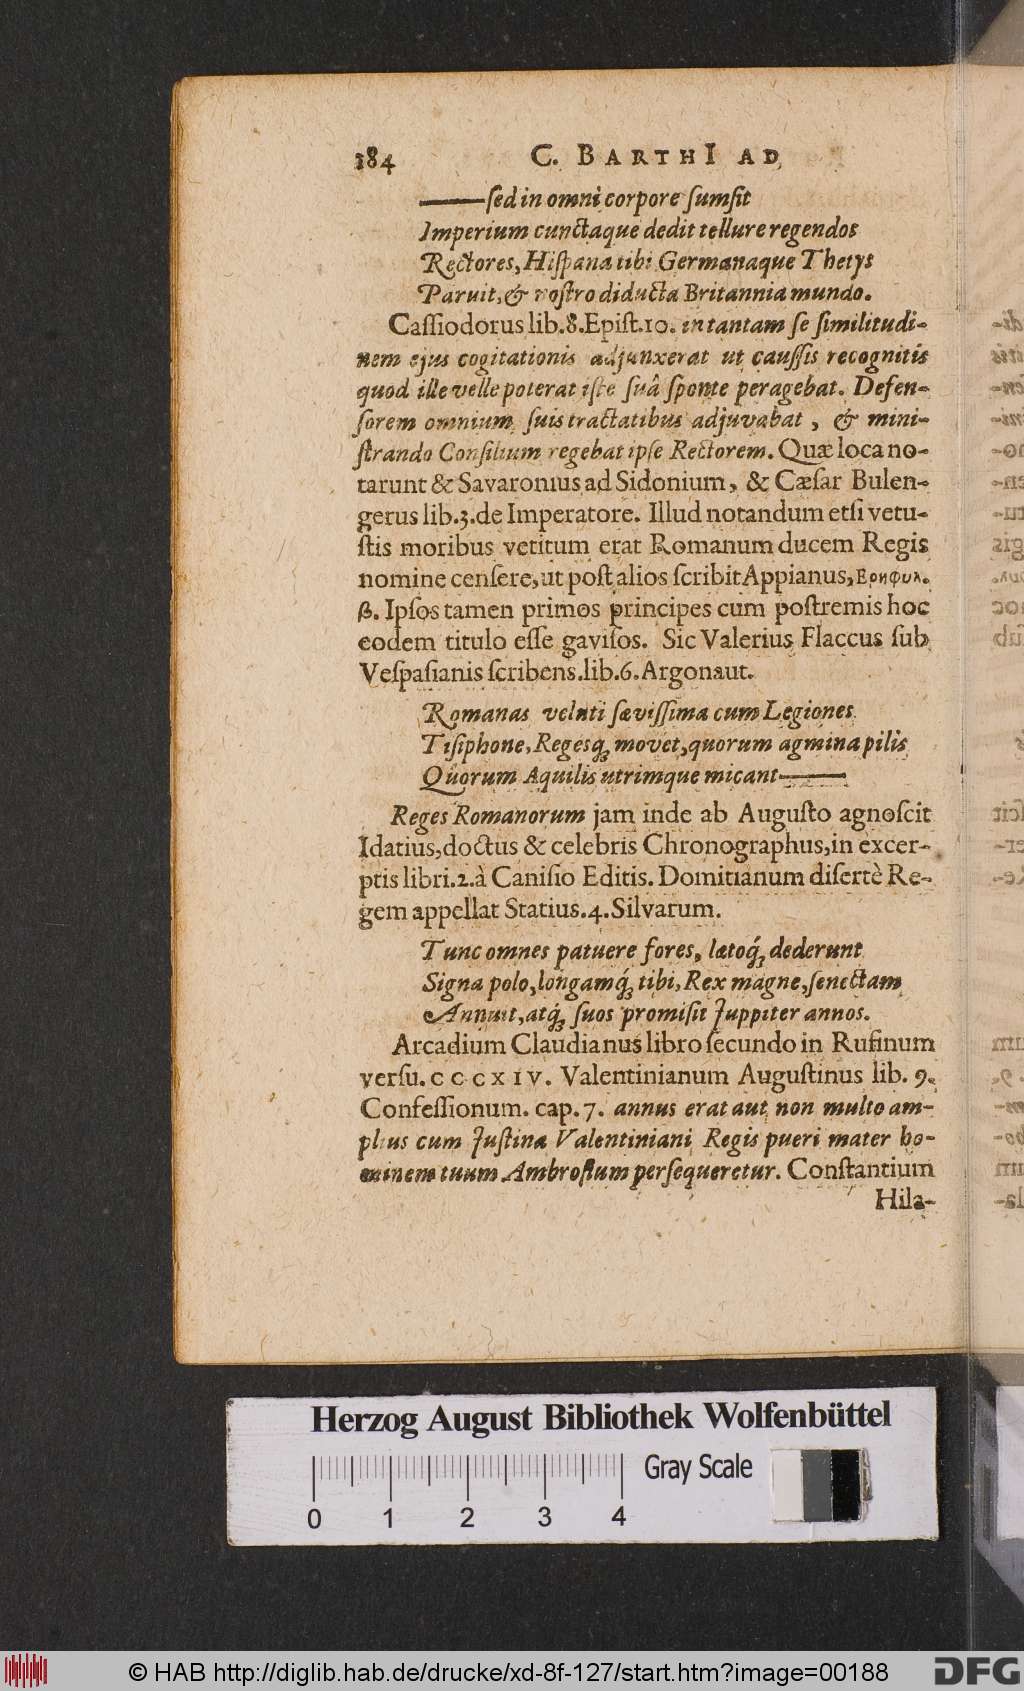 184 C. BARTHI AD
——sed in omni corpore sumsit
Imperium cunctaque dedit tellure regendos
Rectores, Hispana tibi Germanaque Thetys
Paruit, & nostro diducta Britannia mundo.
Cassiodorus lib.8.Epist.10. in tantam se similitudi-
nem ejus cogitationis adjunxerat ut caussis recognitis
quod ille velle poterat iste suâ sponte peragebat. Defen-
sorem omnium suis tractatibus adjuvabat, & mini-
strando Consilium regebat ipse Rectorem. Quæ loca no-
tarunt & Savaronius ad Sidonium, & Cæsar Bulen-
gerus lib.3.de Imperatore. Illud notandum etsi vetu-
stis moribus vetitum erat Romanum ducem Regis
nomine censere, ut post alios scribit Appianus, Ερηφυλ.
β. Ipsos tamen primos principes cum postremis hoc
eodem titulo esse gavisos. Sic Valerius Flaccus sub
Vespasianis scribens.lib.6.Argonaut.
Romanas veluti sævissima cum Legiones
Tisiphone, Regesq́; movet, quorum agmina pilis
Quorum Aquilis utrimque micant——
Reges Romanorum jam inde ab Augusto agnoscit
Idatius, doctus & celebris Chronographus, in excer-
ptis libri.2.à Canisio Editis. Domitianum disertè Re-
gem appellat Statius.4.Silvarum.
Tunc omnes patuere fores, lætoq́; dederunt
Signa polo, longamq́; tibi, Rex magne, senectam
Annuit, atq́; suos promisit Juppiter annos.
Arcadium Claudianus libro secundo in Rufinum
versu. CCCXIV. Valentinianum Augustinus lib. 9.
Confessionum. cap. 7. annus erat aut non multo am-
plius cum Justina Valentiniani Regis pueri mater ho-
minem tuum Ambrosium persequeretur. Constantium
Hila-
Herzog August Bibliothek Wolfenbüttel
Gray Scale
0 1 2 3 4
© HAB http://diglib.hab.de/drucke/xd-8f-127/start.htm?image=00188
DFG